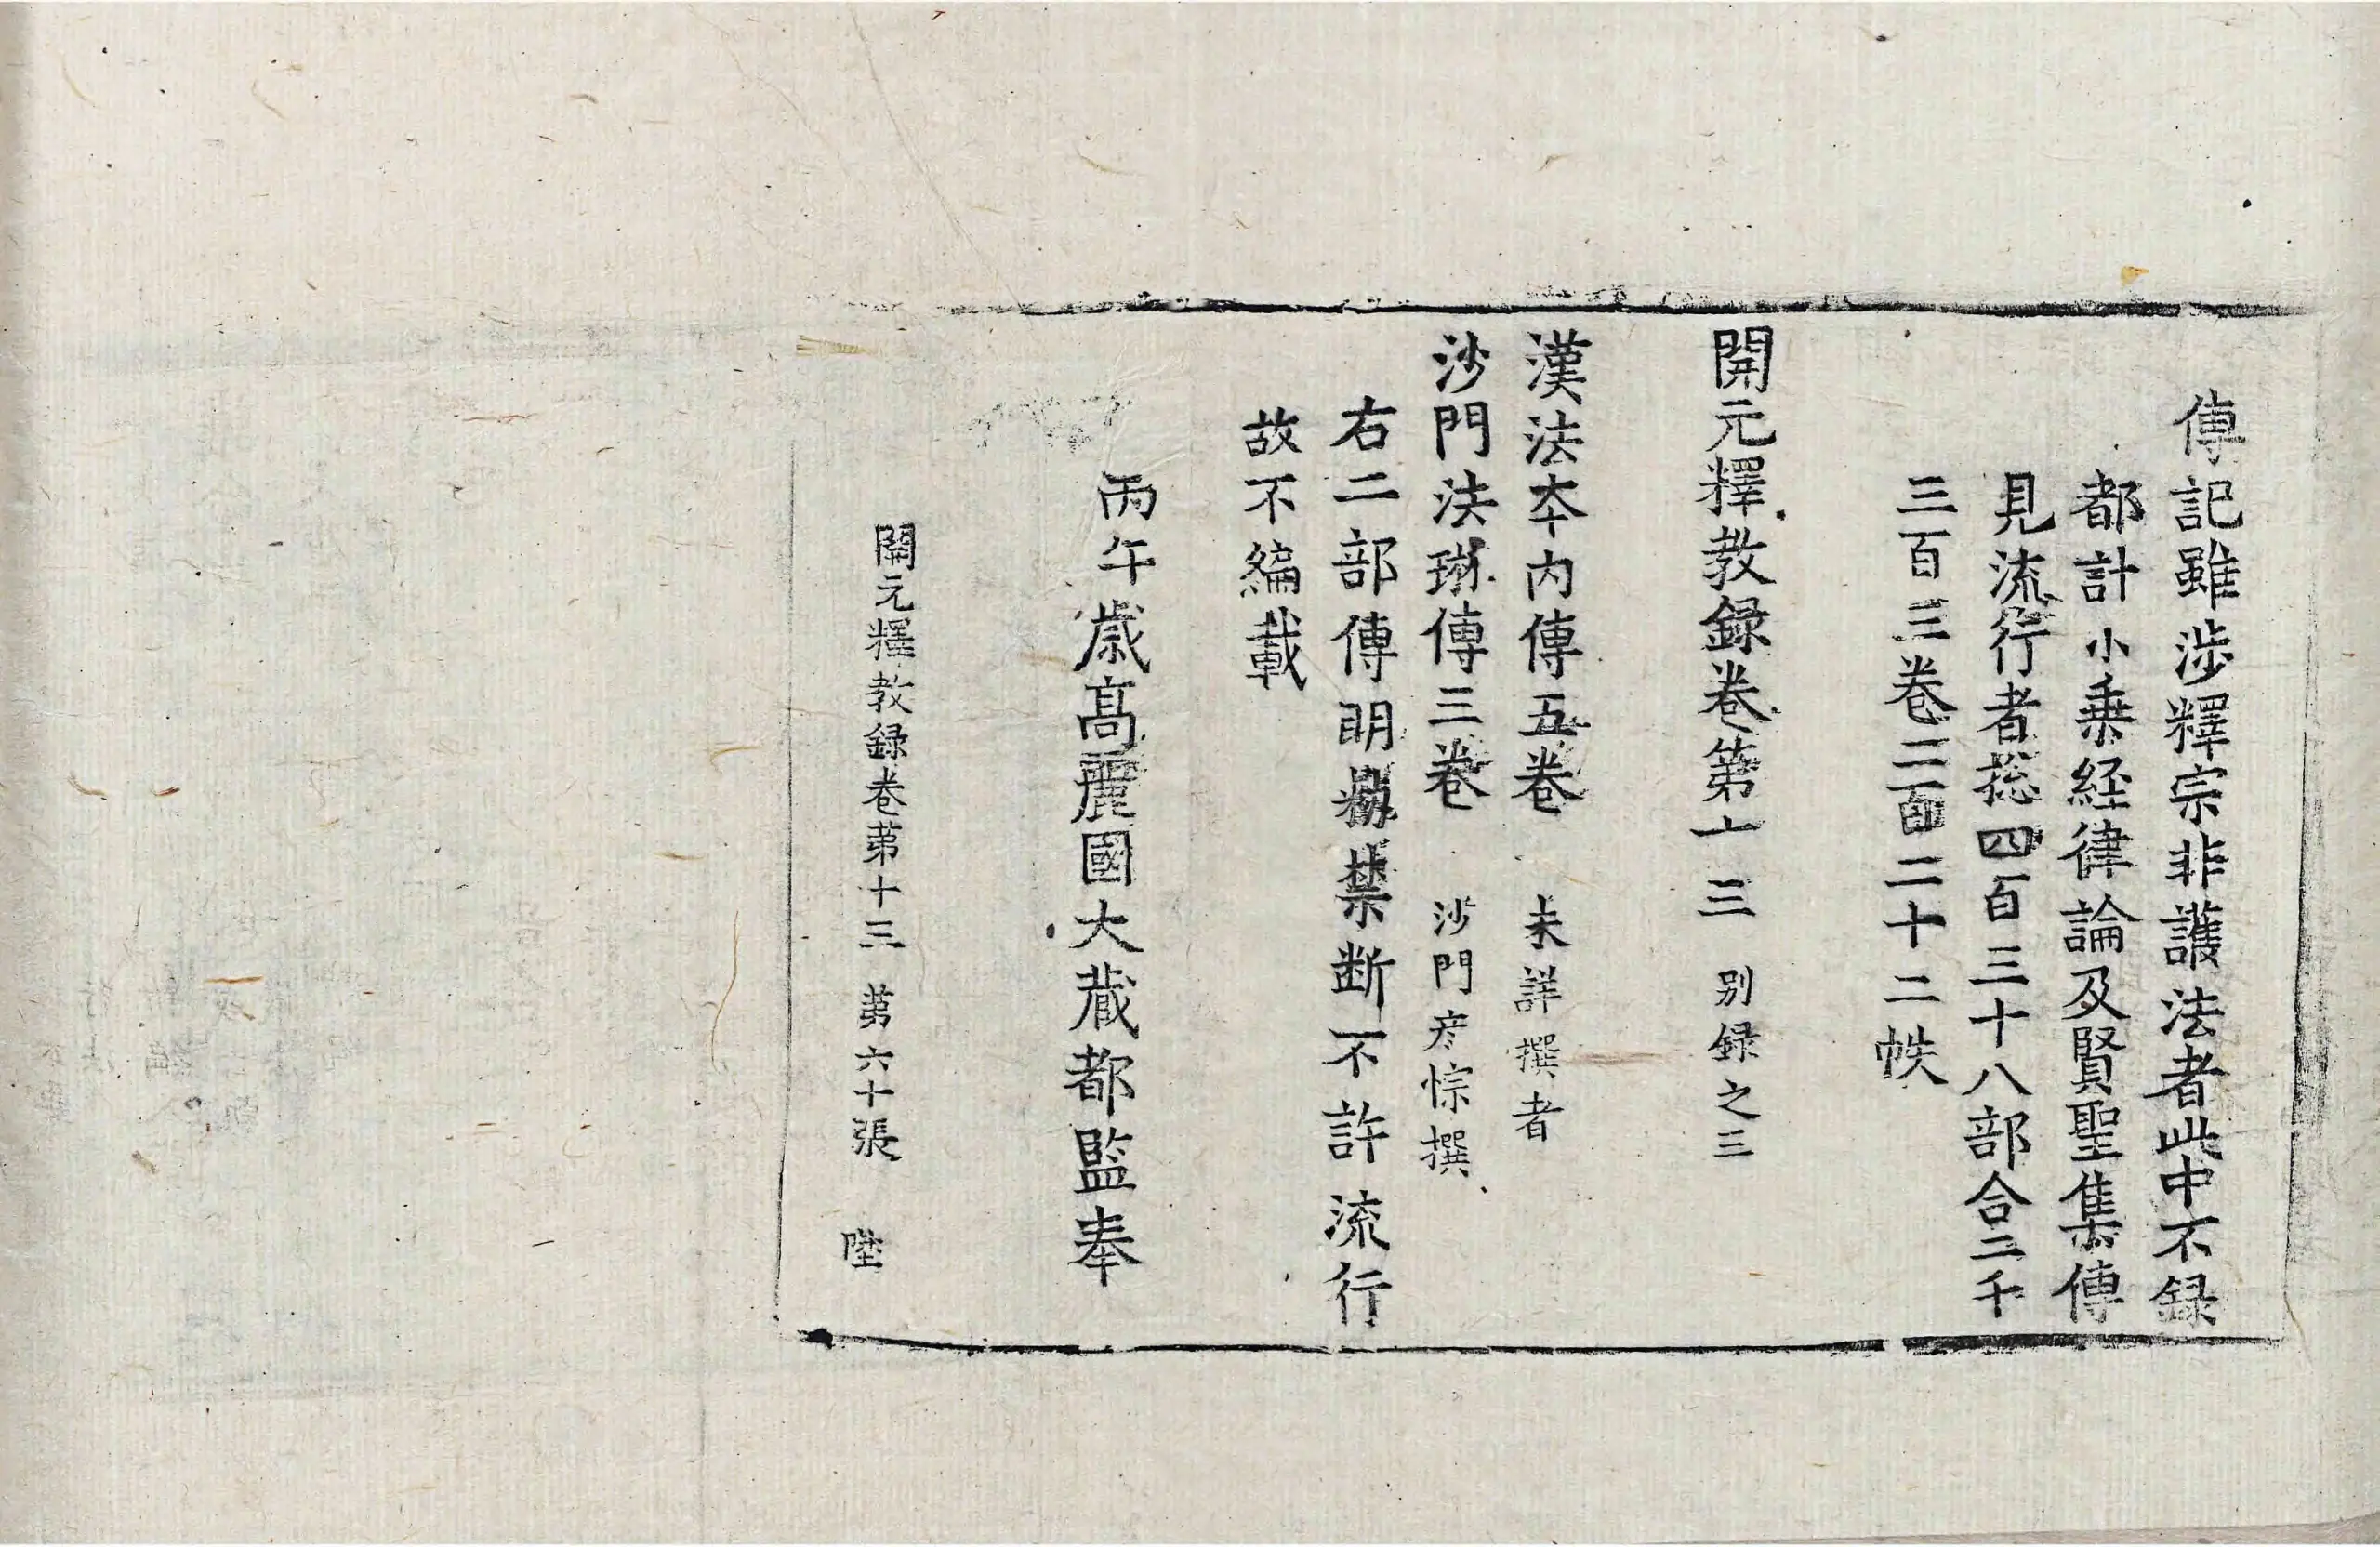 傳記雖涉釋宗非護法者此中不録
都計小乗経律論及賢聖集傳
見流行者揔四百三十八部合二千
三百三卷二百二十二帙
開元釋教録卷第十三 別録之三
漢法夲内傳五卷 未詳撰者
沙門法琳傳三卷 沙門彦悰撰
右二部傳明禁断不許流行
故不編載
丙午歳髙麗國大藏都監奉
開元釋教録卷苐十三 苐六十張 陞